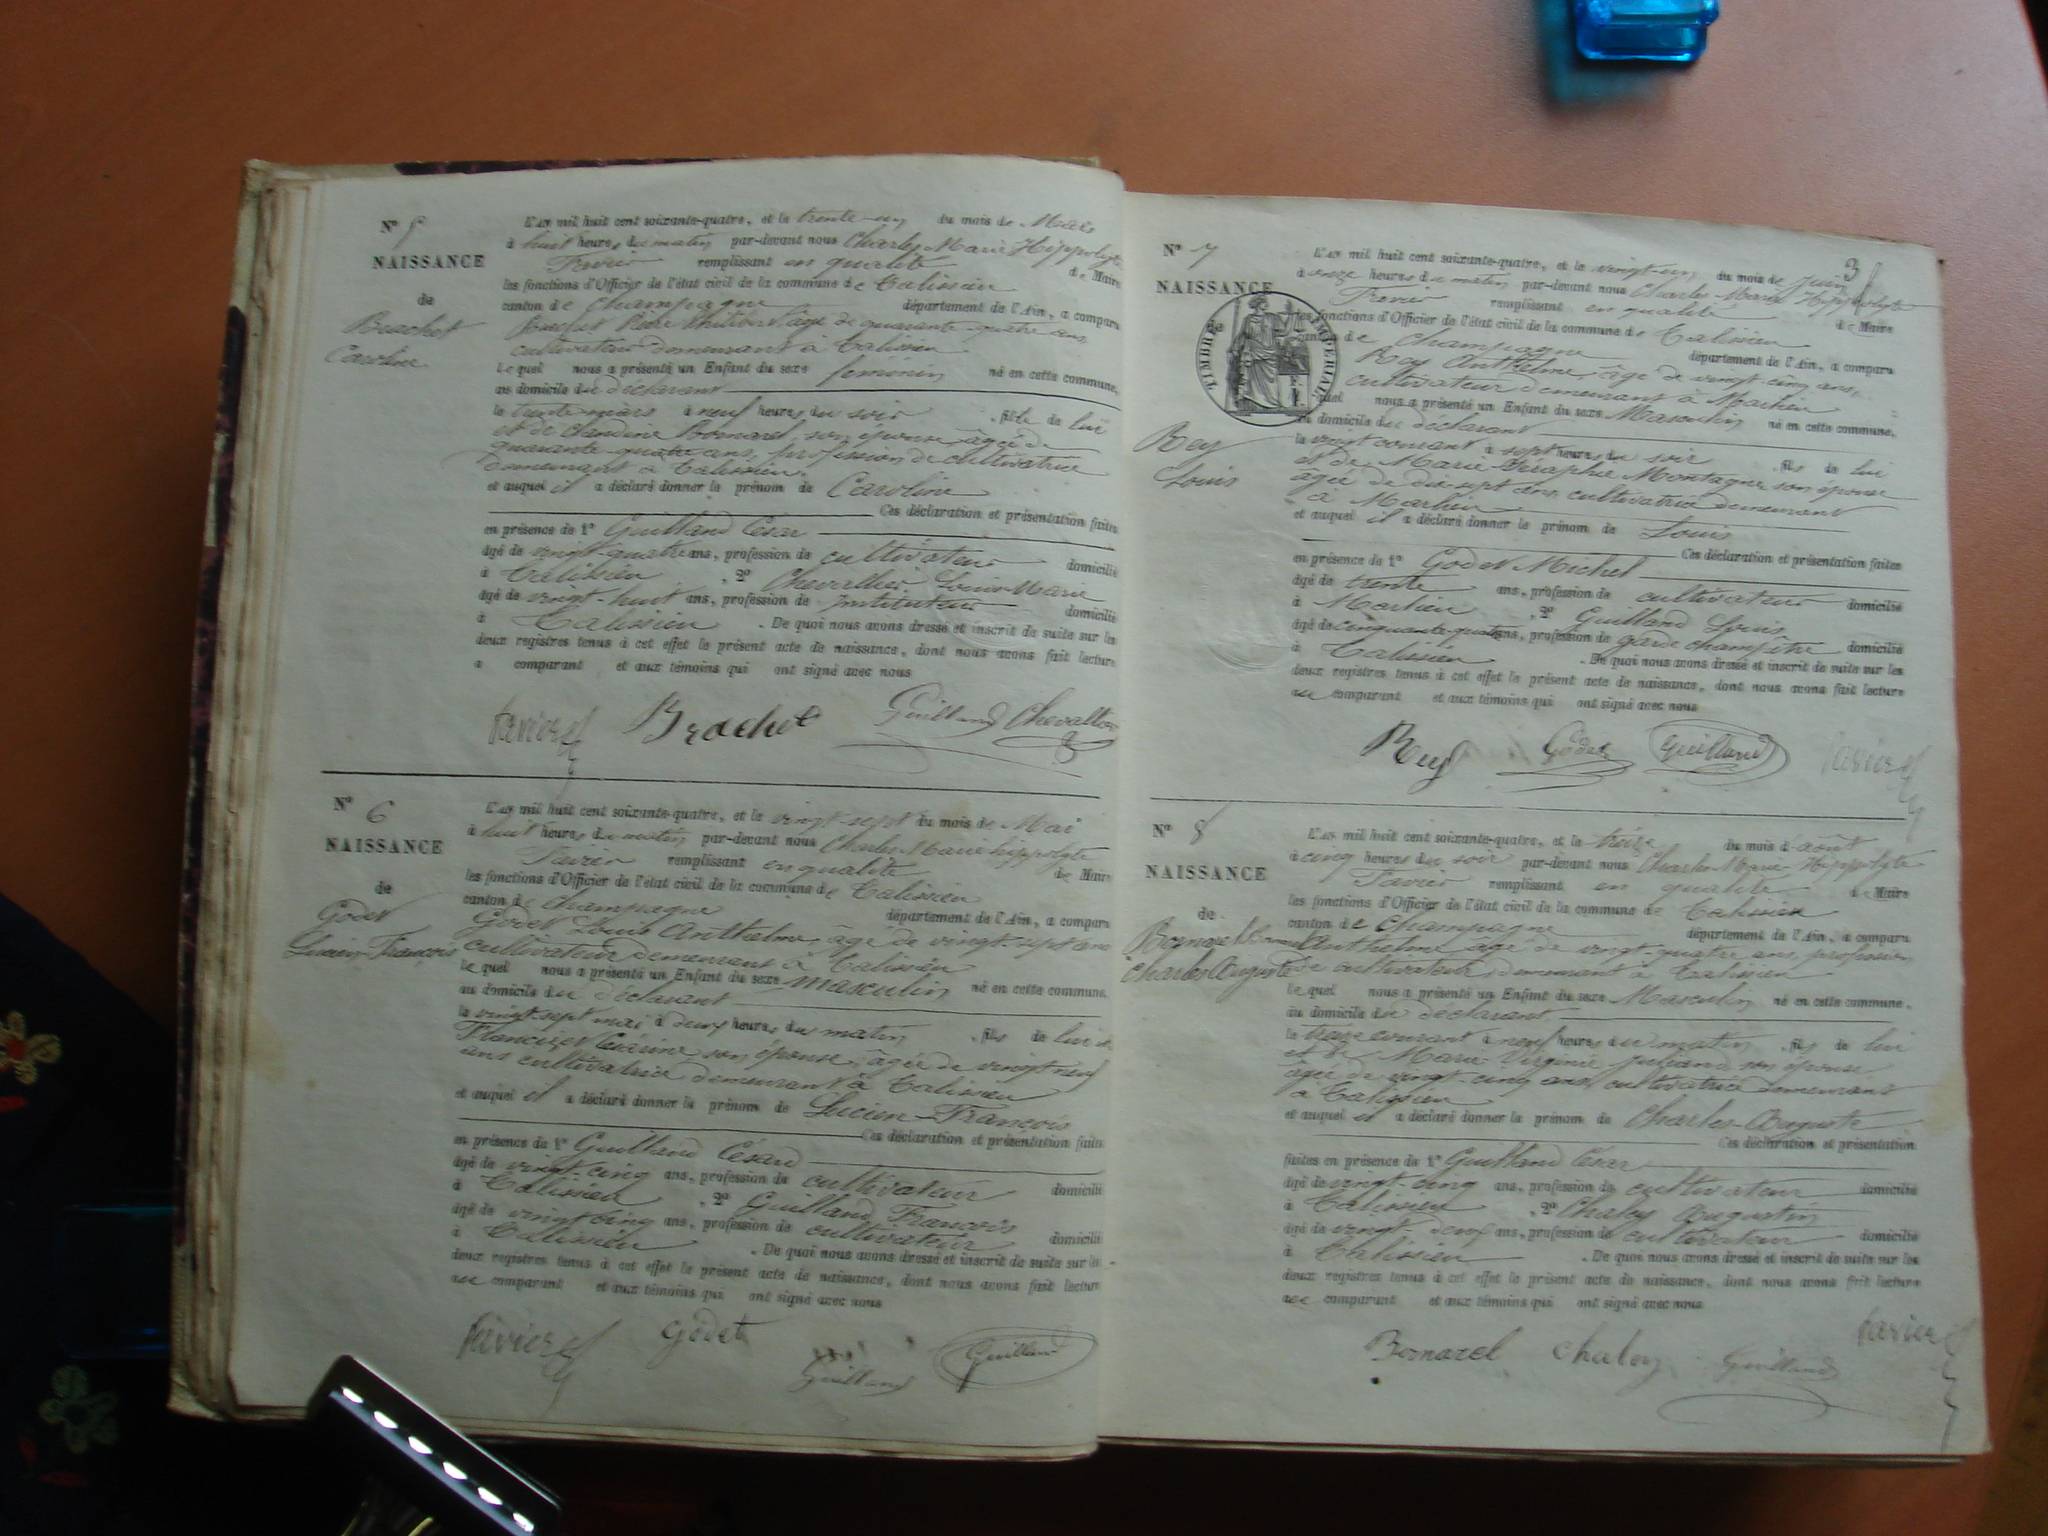 N° 5
NAISSANCE
de
Brachet
Caroline
L'an mil huit cent soixante-quatre, et le trente-un du mois de Mars
à huit heures du matin par-devant nous Charles Marie Hippolyte
Tavier remplissant en qualité de Maire
les fonctions d'Officier de l'état civil de la commune de Talissieu
canton de Champagne département de l'Ain, a comparu
Brachet Pierre Philibert âgé de quarante-quatre ans
cultivateur demeurant à Talissieu
Lequel nous a présenté un Enfant du sexe féminin né en cette commune,
au domicile du déclarant
le trente mars à neuf heures du soir fille de lui
et de Claudine Bornarel son épouse âgée de
quarante-quatre ans, profession de cultivatrice
demeurant à Talissieu.
et auquel il a déclaré donner le prénom de Caroline
Ces déclaration et présentation faites
en présence de 1° Guilland César
âgé de vingt-quatre ans, profession de cultivateur domicilié
à Talissieu , 2° Chevallier Louis Marie
âgé de vingt-huit ans, profession de Instituteur domicilié
à Talissieu . De quoi nous avons dressé et inscrit de suite sur les
deux registres tenus à cet effet le présent acte de naissance, dont nous avons fait lecture
a comparant et aux témoins qui ont signé avec nous
Tavier Brachet Guilland Chevallier
N° 6
NAISSANCE
de
Godet
Lucien-François
L'an mil huit cent soixante-quatre, et le vingt-sept du mois de Mai
à huit heures du matin par-devant nous Charles Marie hippolyte
Tavier remplissant en qualité de Maire
les fonctions d'Officier de l'état civil de la commune de Talissieu
canton de Champagne département de l'Ain, a comparu
Godet Louis Anthelme, âgé de vingt-sept ans
cultivateur demeurant à Talissieu
Lequel nous a présenté un Enfant du sexe masculin né en cette commune,
au domicile du déclarant
le vingt-sept mai à deux heures du matin , fils de lui et
son épouse, âgée de vingt neuf
ans cultivatrice demeurant à Talissieu
et auquel il a déclaré donner le prénom de Lucien-François
Ces déclaration et présentation faites
en présence de 1° Guilland César
âgé de vingt-cinq ans, profession de cultivateur domicilié
à Talissieu , 2° Guilland François
âgé de vingt cinq ans, profession de cultivateur domicilié
à Talissieu . De quoi nous avons dressé et inscrit de suite sur les
deux registres tenus à cet effet le présent acte de naissance, dont nous avons fait lecture
au comparant et aux témoins qui ont signé avec nous
Tavier Godet Guilland Guilland
3
N° 7
NAISSANCE
de
TIMBRE IMPERIAL
Rey
Louis
L'an mil huit cent soixante-quatre, et le vingt-un du mois de Juin
à onze heures du matin par-devant nous Charles Marie Hippolyte
Tavier remplissant en qualité de Maire
les fonctions d'Officier de l'état civil de la commune de Talissieu
canton de Champagne département de l'Ain, a comparu
Rey Anthelme, âgé de vingt cinq ans,
cultivateur demeurant à Marlieu
Lequel nous a présenté un Enfant du sexe Masculin né en cette commune,
au domicile du déclarant
le vingt courant à sept heures du soir , fils de lui
et de Marie Séraphie Montagne son épouse
âgée de dix sept ans, cultivatrice demeurant
à Marlieu
et auquel il a déclaré donner le prénom de Louis
Ces déclaration et présentation faites
en présence de 1° Godet Michel
âgé de trente ans, profession de cultivateur domicilié
à Marlieu , 2° Guilland Louis
âgé de cinquante-quatre ans, profession de garde champêtre domicilié
à Talissieu . De quoi nous avons dressé et inscrit de suite sur les
deux registres tenus à cet effet le présent acte de naissance, dont nous avons fait lecture
au comparant et aux témoins qui ont signé avec nous
Rey Godet Guilland Tavier
N° 8
NAISSANCE
de
Bornarel
Charles Auguste
L'an mil huit cent soixante-quatre, et le treize du mois d'août
à cinq heures du soir par-devant nous Charles-Marie-Hippolyte
Tavier remplissant en qualité de Maire
les fonctions d'Officier de l'état civil de la commune de Talissieu
canton de Champagne département de l'Ain, a comparu
Bornarel Anthelme âgé de vingt-quatre ans, profession
de cultivateur, demeurant à Talissieu
Lequel nous a présenté un Enfant du sexe Masculin né en cette commune,
au domicile du déclarant
le treize courant à neuf heures du matin , fils de lui
et de Marie-Virginie Juliand son épouse
âgée de vingt-cinq ans, cultivatrice demeurant
à Talissieu
et auquel il a déclaré donner le prénom de Charles-Auguste
Ces déclaration et présentation
faites en présence de 1° Guilland César
âgé de vingt-cinq ans, profession de cultivateur domicilié
à Talissieu , 2° Chaley Augustin
âgé de vingt-deux ans, profession de cultivateur domicilié
à Talissieu . De quoi nous avons dressé et inscrit de suite sur les
deux registres tenus à cet effet le présent acte de naissance, dont nous avons fait lecture
au comparant et aux témoins qui ont signé avec nous
Bornarel Chaley Guilland Tavier